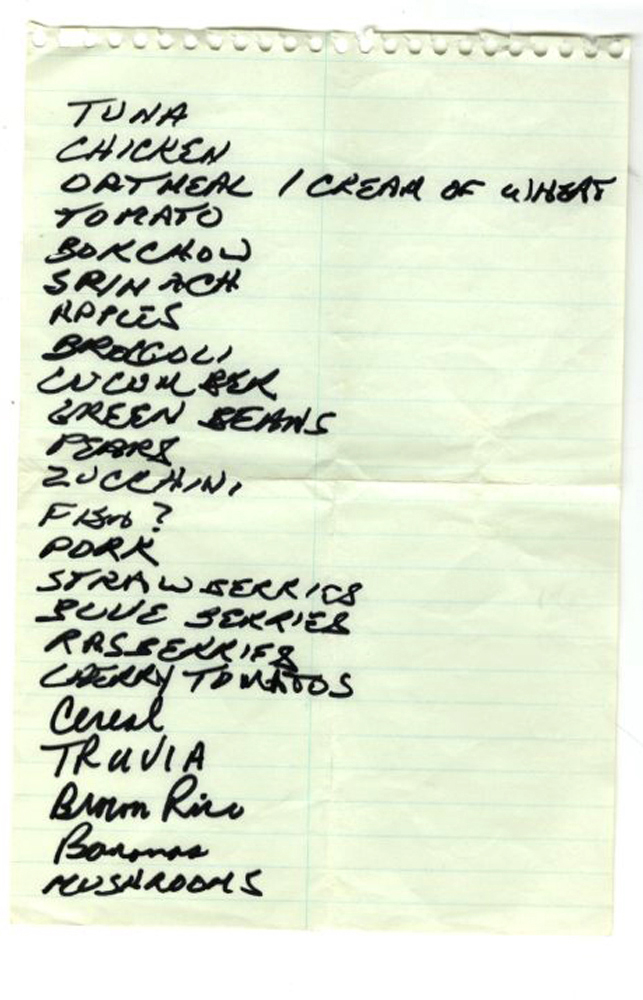 TUNA
CHICKEN
OATMEAL / CREAM OF WHEAT
TOMATO
BOKCHOW
SPINACH
APPLES
BROCCOLI
CUCUMBER
GREEN BEANS
PEARS
ZUCCHINI
FISH ?
PORK
STRAWBERRIES
BLUE BERRIES
RASBERRIES
CHERRY TOMATOS
Cereal
TRUVIA
Brown Rice
Bananas
MUSHROOMS